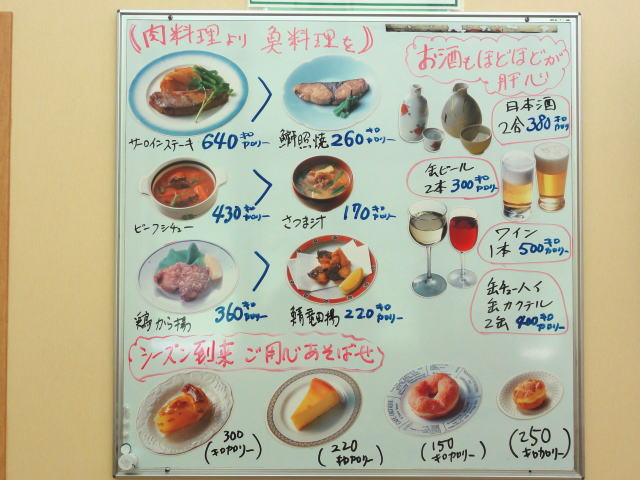 《肉料理より 魚料理を》
サーロインステーキ 640キロカロリー
鰤照焼 260キロカロリー
ビーフシチュー 430キロカロリー
さつま汁 170キロカロリー
鶏から揚 360キロカロリー
鯖竜田揚 220キロカロリー
お酒もほどほどが
肝心
日本酒
2合 380キロカロリー
缶ビール
2本 300キロカロリー
ワイン
1本 500キロカロリー
缶チューハイ
缶カクテル
2缶 400キロカロリー
シーズン到来 ご用心あそばせ
300
(キロカロリー)
(220
キロカロリー)
(150
キロカロリー)
(250
キロカロリー)